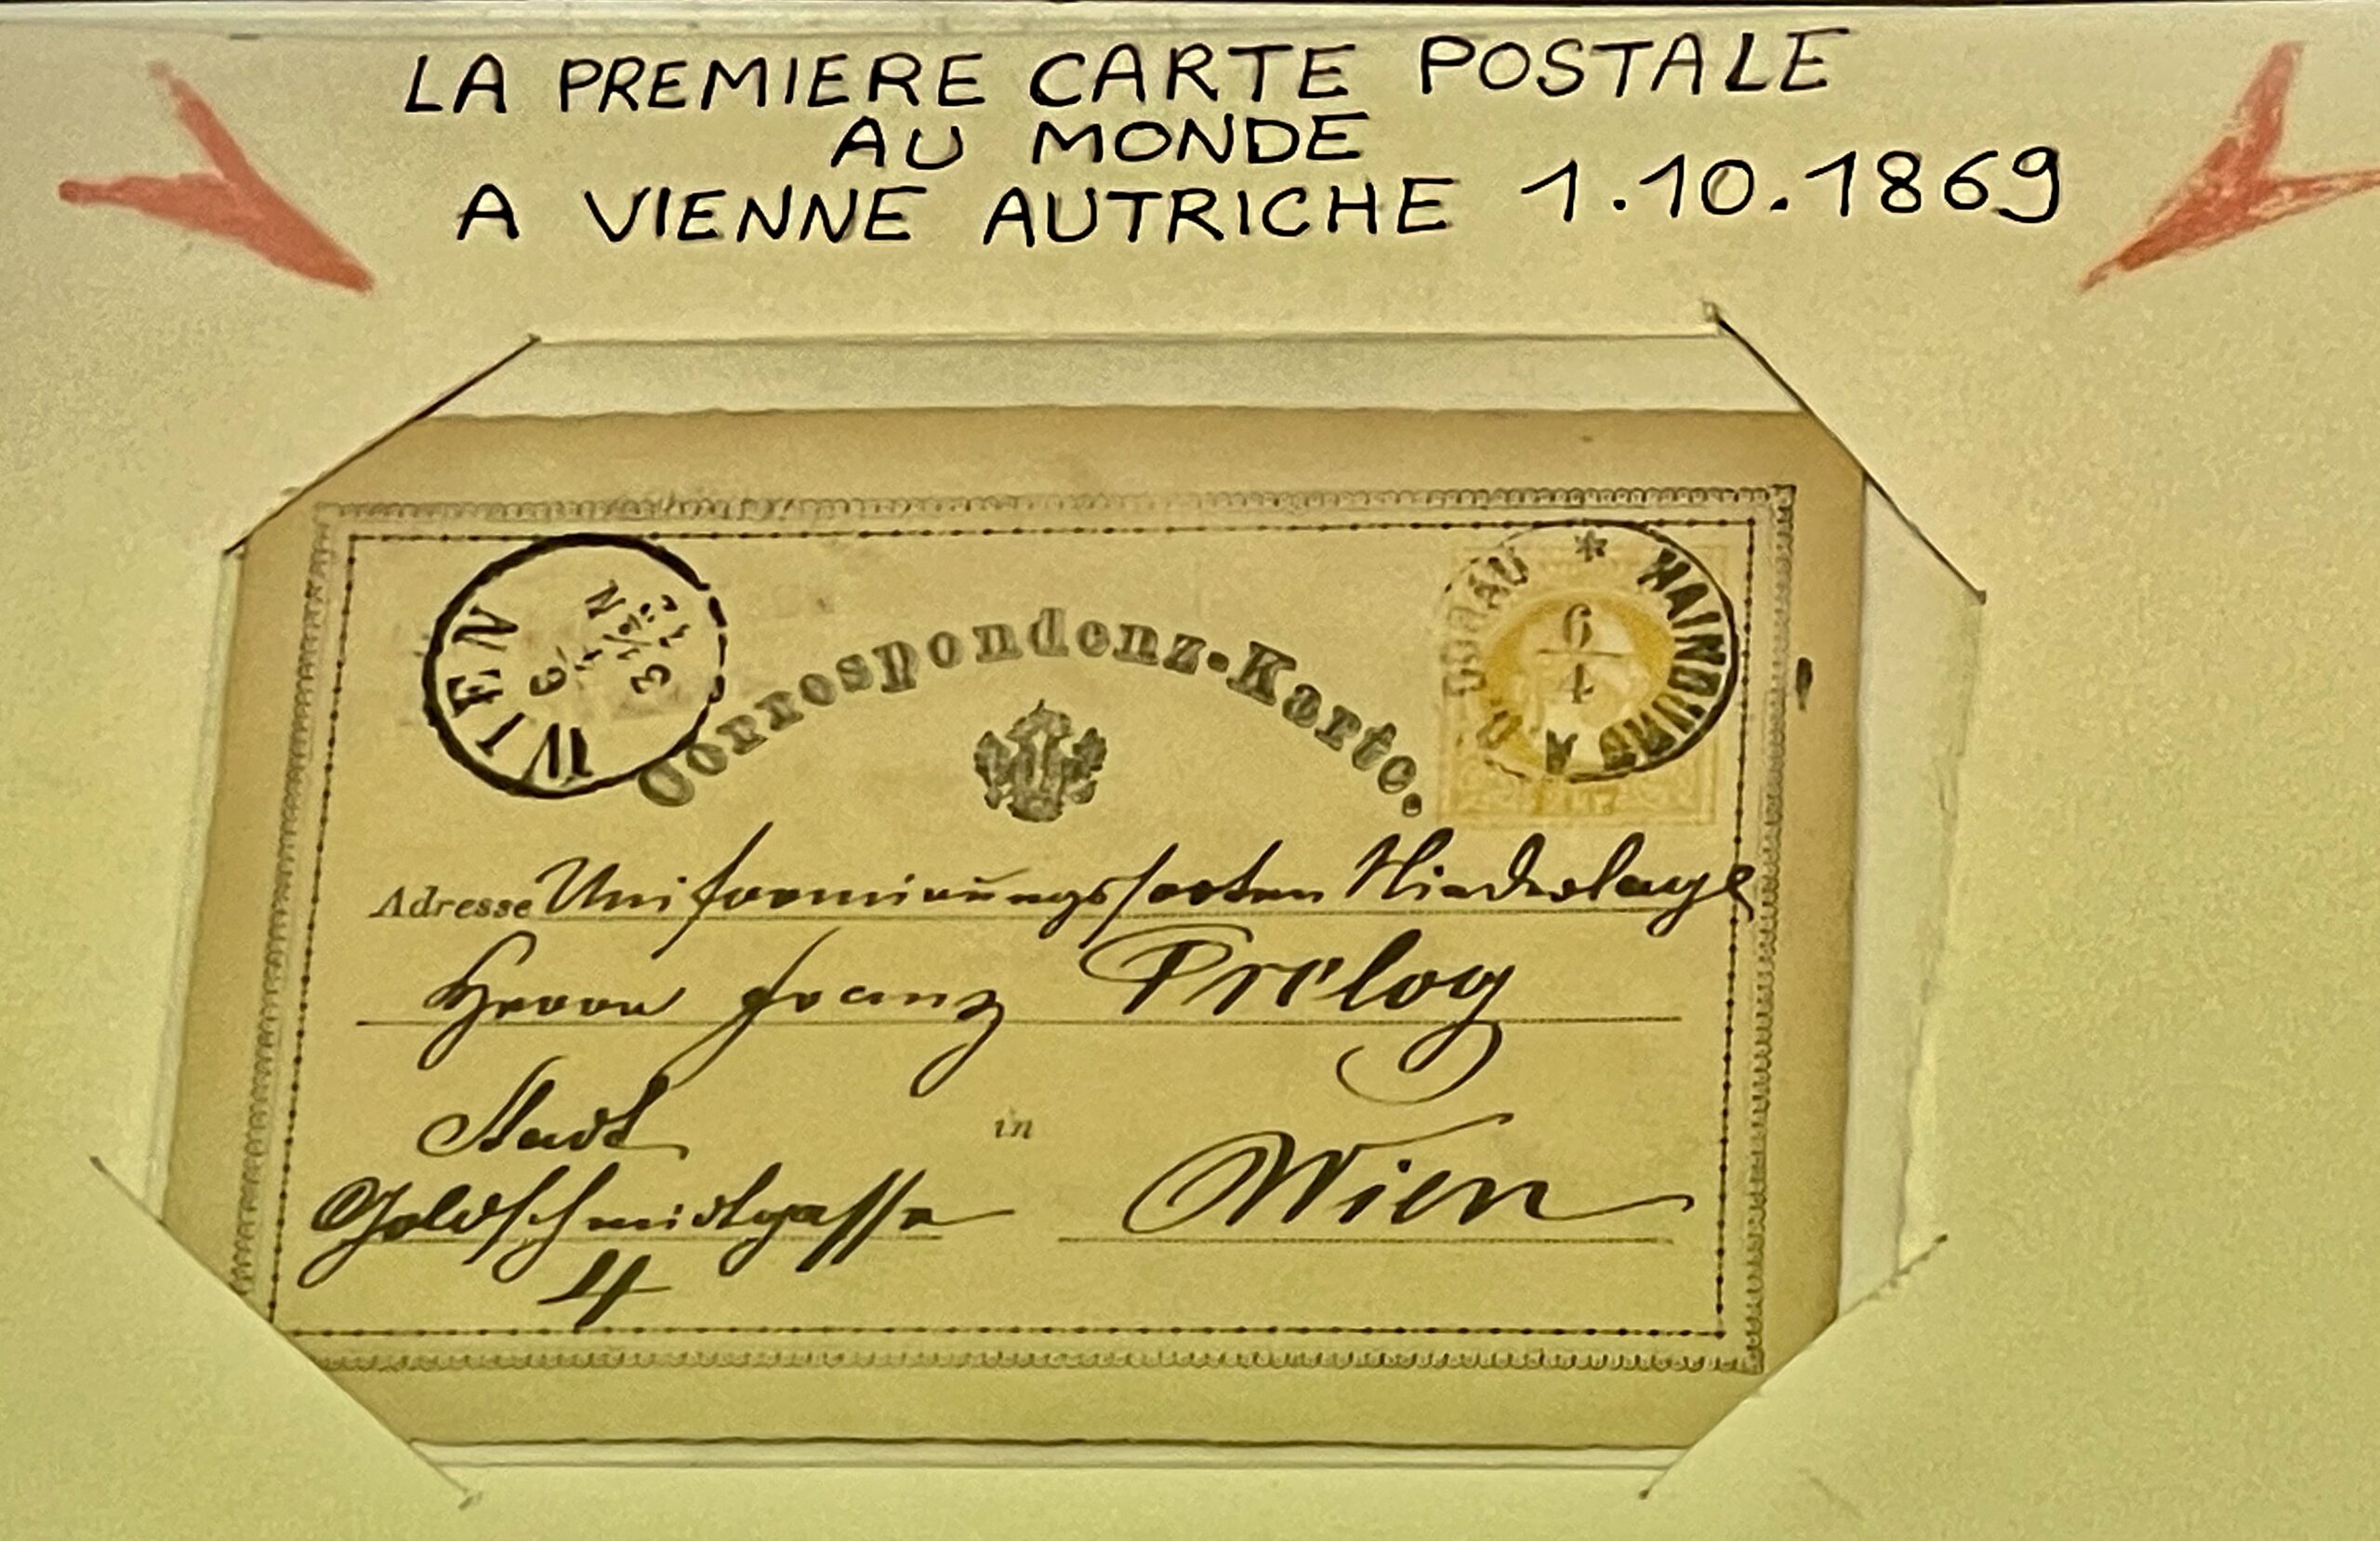 LA PREMIERE CARTE POSTALE
AU MONDE
A VIENNE AUTRICHE 1.10.1869
WIEN
Correspondenz-Karte.
HAINBURG A D DONAU
6
4
Adresse Uniformirungssorten Niederlage
Herrn Franz Prelog
Stadt
in
Goldschmidtgasse Wien
4